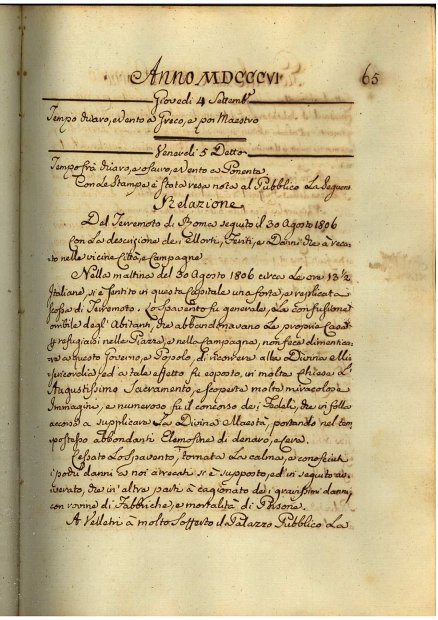 Anno MDCCCVI
65
Giovedì 4 Settemb.e
Tempo chiaro, e Vento a Greco, e poi Maestro
Venerdì 5 Detto
Tempo frà chiaro, e oscuro, e Vento a Ponente
Con Le Stampe è stata resa nota al Pubblico La seguen.
Relazione
Del Terremoto di Roma seguito il 30 Agosto 1806
Con La descrizione de i Morti, Feriti, e Danni che à reca-
to nelle vicine Città, e Campagne
Nella mattina del 30 Agosto 1806 circa Le ore 13 1/2
Italiane, si è sentito in questa Capitale una forte, e replicata
scossa di Terremoto. Lo spavento fu generale, La confusione
degl'Abitanti, che abbandonavano Le proprie Case
refugiasi nelle Piazze, e nella Campagna, non fece dimentica-
re a questo Governo, e Popolo, di ricorrere alla Divina Mi-
sericordia, ed a tale effetto fu esposto, in molte Chiese L'
Augustissimo Sacramento, e scoperte molte miracolose
Immagini, e numeroso fu il concorso de i Fedeli, che in folla
accorse a supplicare La Divina Maestà, portando nel tem-
po stesso abbondanti Elemosine di denaro, e Cera.
Cessato Lo spavento, tornata La calma, e conosciuti
i pochi danni a noi arrecati si è supposto, ed in seguito av-
verato, che in altre parti à cagionato de i gravissimi danni,
con rovine di Fabbriche, e mortalità di Persone.
A Velletri à molto sofferto il Palazzo Pubblico La